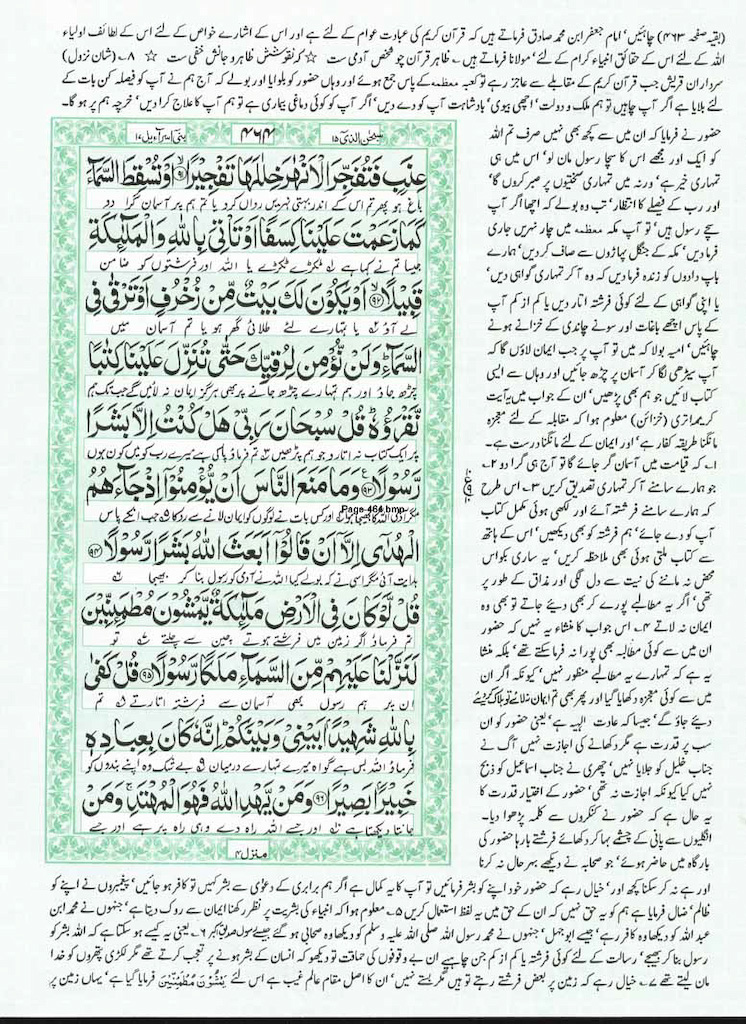 (بقیہ صفحہ ۴۶۳) چاہئیں' امام جعفر ابن محمد صادق فرماتے ہیں کہ قرآن کریم کی عبادت عوام کے لئے ہے اور اس کے اشارے خواص کے لئے اس کے لطائف اولیاء
اللہ کے لئے اس کے حقائق انبیاء کرام کے لئے' مولانا فرماتے ہیں ۔ ظاہر قرآن چو شخص آدمی ست ☆ کہ نقوشش ظاہر و جانش خفی ست ☆ ۸۔ (شان نزول)
سرداران قریش جب قرآن کریم کے مقابلے سے عاجز رہے تو کعبہ معظمہ کے پاس جمع ہوئے اور وہاں حضور کو بلوایا اور بولے کہ آج ہم نے آپ کو فیصلہ کن بات کے
لئے بلایا ہے اگر آپ چاہیں تو ہم ملک و دولت' اچھی بیوی' بادشاہت آپ کو دے دیں' اگر آپ کو کوئی دماغی بیماری ہے تو ہم آپ کا علاج کرا دیں' خرچہ ہم پر ہو گا۔
حضور نے فرمایا کہ ان میں سے کچھ بھی نہیں صرف تم اللہ
کو ایک اور مجھے اس کا سچا رسول مان لو' اس میں ہی
تمہاری خیر ہے' ورنہ میں تمہاری سختیوں پر صبر کروں گا'
اور رب کے فیصلے کا انتظار' تب وہ بولے کہ اچھا اگر آپ
سچے رسول ہیں' تو آپ مکہ معظمہ میں چار نہریں جاری
فرما دیں' مکہ کے جنگل پہاڑوں سے صاف کر دیں' ہمارے
باپ دادوں کو زندہ فرما دیں کہ وہ آ کر تمہاری گواہی دیں'
یا اپنی گواہی کے لئے کوئی فرشتہ اتار دیں یا کم از کم آپ
کے پاس اچھے باغات اور سونے چاندی کے خزانے ہونے
چاہئیں' امیہ بولا کہ میں تو آپ پر جب ایمان لاؤں گا کہ
آپ سیڑھی لگا کر آسمان پر چڑھ جائیں اور وہاں سے ایسی
کتاب لائیں جو ہم بھی پڑھیں' ان کے جواب میں یہ آیت
کریمہ اتری (خزائن) معلوم ہوا کہ مقابلہ کے لئے معجزہ
مانگنا طریقہ کفار ہے' اور ایمان کے لئے مانگنا درست ہے۔
۱۔ کہ قیامت میں آسمان گر جائے گا تو آج ہی گرا دو ۲۔
جو ہمارے سامنے آ کر تمہاری تصدیق کریں ۳۔ اس طرح
کہ ہمارے سامنے فرشتہ آئے اور لکھی ہوئی مکمل کتاب
آپ کو دے جائے' ہم فرشتہ کو بھی دیکھیں' اس کے ہاتھ
سے کتاب ملتی ہوئی بھی ملاحظہ کریں' یہ ساری بکواس
محض نہ ماننے کی نیت سے دل لگی اور مذاق کے طور پر
تھی' اگر یہ مطالبے پورے کر بھی دیئے جاتے تو بھی وہ
ایمان نہ لاتے ۴۔ اس جواب کا منشاء یہ نہیں کہ حضور
ان میں سے کوئی مطالبہ بھی پورا نہ فرما سکتے تھے' بلکہ منشا
یہ ہے کہ تمہارے یہ مطالبے منظور نہیں' کیونکہ اگر ان
میں سے کوئی معجزہ دکھایا گیا اور پھر بھی تم ایمان نہ لائے تو ہلاک کر دیئے
دیئے جاؤ گے' جیسا کہ عادت الہیہ ہے' یعنی حضور کو ان
سب پر قدرت ہے مگر دکھانے کی اجازت نہیں' آگ نے
جناب خلیل کو جلایا نہیں' چھری نے جناب اسماعیل کو ذبح
نہیں کیا کیونکہ اجازت نہ تھی' حضور کے اختیار قدرت کا
یہ حال ہے کہ حضور نے کنکروں سے کلمہ پڑھوا دیا۔
انگلیوں سے پانی کے چشمے بہا کر دکھائے فرشتے بارہا حضور کی
بارگاہ میں حاضر ہوئے' جو صحابہ نے دیکھے بہر حال نہ کرنا
سبحٰن الذی ۱۵
۴۶۴
بنی اسرآءیل ۱۷
عِنَبٍ فَتُفَجِّرَ الْاَنْهٰرَ خِلٰلَهَا تَفْجِيْرًا ۹۱ اَوْ تُسْقِطَ السَّمَآءَ
باغ ہو پھر تم اس کے اندر بہتی نہریں رواں کرو یا تم ہم پر آسمان گرا دو
كَمَا زَعَمْتَ عَلَيْنَا كِسَفًا اَوْ تَاْتِيَ بِاللّٰهِ وَ الْمَلٰٓىِٕكَةِ
جیسا تم نے کہا ہے ٹکڑے ٹکڑے یا اللہ اور فرشتوں کو ضامن
قَبِيْلًا ۹۲ اَوْ يَكُوْنَ لَكَ بَيْتٌ مِّنْ زُخْرُفٍ اَوْ تَرْقٰى فِى
لے آؤ یا تمہارے لئے طلائی گھر ہو یا تم آسمان میں
السَّمَآءِ وَلَنْ نُّؤْمِنَ لِرُقِيِّكَ حَتّٰى تُنَزِّلَ عَلَيْنَا كِتٰبًا
چڑھ جاؤ اور ہم تمہارے چڑھ جانے پر بھی ہرگز ایمان نہ لائیں گے جب تک ہم
نَّقْرَؤُهٗ قُلْ سُبْحَانَ رَبِّىْ هَلْ كُنْتُ اِلَّا بَشَرًا
پر ایک کتاب نہ اتارو جو ہم پڑھیں تم فرماؤ پاکی ہے میرے رب کو میں کون ہوں
رَّسُوْلًا ۹۳ وَ مَا مَنَعَ النَّاسَ اَنْ يُّؤْمِنُوْۤا اِذْ جَآءَهُمُ
مگر آدمی اللہ کا بھیجا ہوا اور کس بات نے لوگوں کو ایمان لانے سے روکا جب انکے پاس
Page-464.bmp
الْهُدٰۤى اِلَّاۤ اَنْ قَالُوْۤا اَبَعَثَ اللّٰهُ بَشَرًا رَّسُوْلًا ۹۴
ہدایت آئی مگر اسی نے کہ بولے کیا اللہ نے آدمی کو رسول بنا کر بھیجا
قُلْ لَّوْ كَانَ فِى الْاَرْضِ مَلٰٓىِٕكَةٌ يَّمْشُوْنَ مُطْمَىِٕنِّيْنَ
تم فرماؤ اگر زمین میں فرشتے ہوتے چین سے چلتے تو
لَنَزَّلْنَا عَلَيْهِمْ مِّنَ السَّمَآءِ مَلَكًا رَّسُوْلًا ۹۵ قُلْ كَفٰى
ان پر ہم رسول بھی آسمان سے فرشتہ اتارتے تم
بِاللّٰهِ شَهِيْدًۢا بَيْنِىْ وَ بَيْنَكُمْ اِنَّهٗ كَانَ بِعِبَادِهٖ
فرماؤ اللہ بس ہے گواہ میرے تمہارے درمیان بے شک وہ اپنے بندوں کو
خَبِيْرًۢا بَصِيْرًا ۹۶ وَ مَنْ يَّهْدِ اللّٰهُ فَهُوَ الْمُهْتَدِ وَ مَنْ
جانتا دیکھتا ہے اور جسے اللہ راہ دے وہی راہ پر ہے اور جسے
منزل ۴
اور ہے نہ کر سکنا کچھ اور' خیال رہے کہ حضور خود اپنے کو بشر فرمائیں تو آپ کا یہ کمال ہے اگر ہم برابری کے دعوٰی سے بشر کہیں تو کافر ہو جائیں' پیغمبروں نے اپنے کو
ظالم' ضال فرمایا ہے ہم کو یہ حق نہیں کہ ان کے حق میں یہ لفظ استعمال کریں ۵۔ معلوم ہوا کہ انبیاء کی بشریت پر نظر رکھنا ایمان سے روک دیتا ہے' جنہوں نے محمد ابن
عبد اللہ کو دیکھا وہ کافر رہے' جیسے ابو جہل' جنہوں نے محمد رسول اللہ صلی اللہ علیہ وسلم کو دیکھا وہ صحابی ہو گئے جیسے رسول صدیق اکبر ۶۔ یعنی یہ کیسے ہو سکتا ہے کہ اللہ بشر کو
رسول بنا کر بھیجے' رسالت کے لئے کوئی فرشتہ یا کم از کم جن چاہیے ان بے وقوفوں کی حماقت تو دیکھو کہ انسان کے بشر ہونے پر تعجب کرتے تھے مگر لکڑی پتھروں کو خدا
مان لیتے تھے ۷۔ خیال رہے کہ زمین پر بعض فرشتے رہتے تو ہیں مگر بستے نہیں' ان کا اصل مقام عالم غیب ہے اس لئے يَمْشُوْنَ مُطْمَئِنِّيْنَ فرمایا گیا ہے' یہاں زمین پر